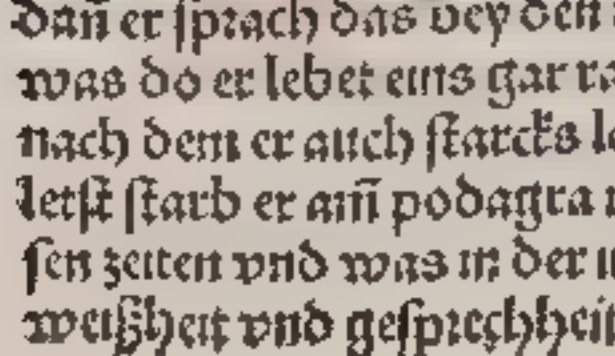 dañ er ſprach das bey den
was do er lebet eins gar
nach dem er auch ſtarcks
letſt ſtarb er am̄ podagra
ſen zeiten vnd was in der
weißheit vnd geſprechheit